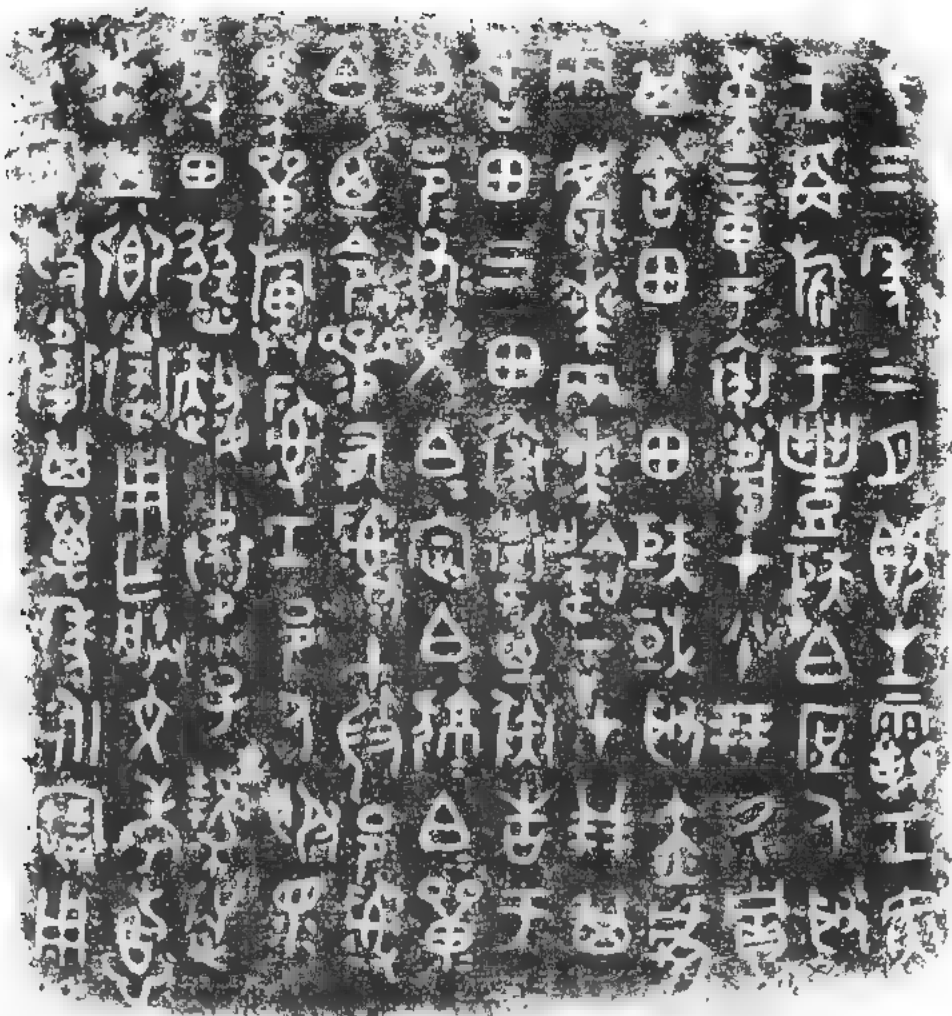 隹三年三月既生霸壬寅
王爯旂于豐矩白庶人取
堇章于裘衛才八十朋氒貯
其舍田十田矩或取赤虎
兩麀𠦪兩𠦪韐一才廿朋其
舍田三田裘衛乃彘告于
白邑父榮白定白𤨾白單
白乃令參有𤔲𤔲土𢼸邑𤔲
馬單旟𤔲工邑人服眔
受田燹趞衛小子逆
者其卿衛用乍朕文考惠
孟寶般衛其萬年永寶用